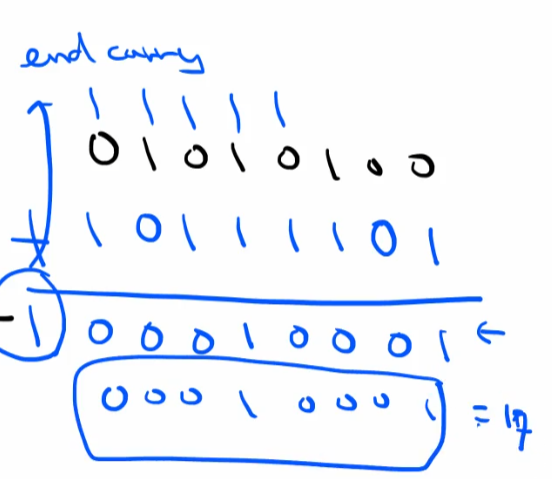 end carry
1 1 1 1 1
0 1 0 1 0 1 0 0
+ 1 0 1 1 1 1 0 1
1 0 0 0 1 0 0 0 1 ←
0 0 0 1 0 0 0 1 = 17